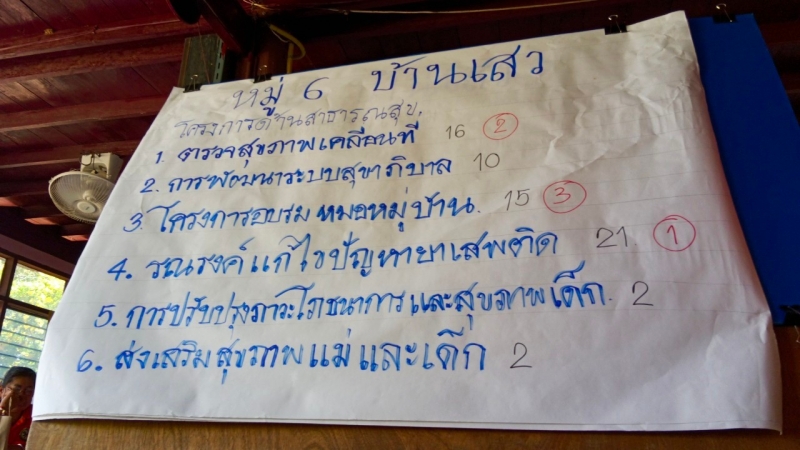 หมู่ 6 บ้านเสว
โครงการด้านสาธารณสุข.
1. ตรวจสุขภาพเคลื่อนที่ 16 2
2. การพัฒนาระบบสุขาภิบาล 10
3. โครงการอบรม หมอหมู่บ้าน. 15 3
4. รณรงค์แก้ไขปัญหายาเสพติด 21 1
5. การปรับปรุงภาวะโภชนาการและสุขภาพเด็ก. 2
6. ส่งเสริมสุขภาพแม่และเด็ก 2